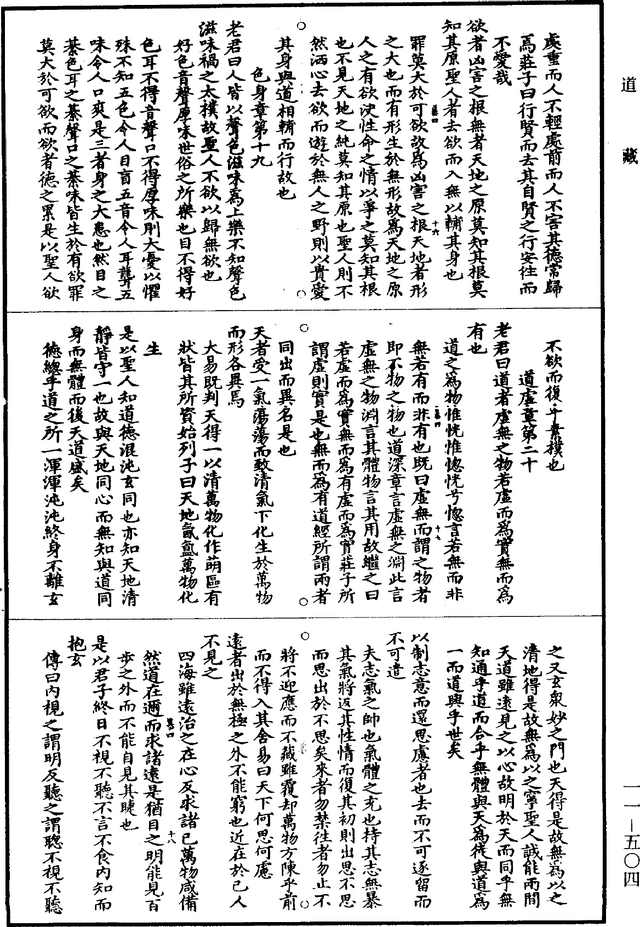 道藏
處重而人不輕處前而人不害其德常歸
焉莊子曰行賢而去其自賢之行安往而
不愛哉
欲者凶害之根無者天地之原莫知其根莫
知其原聖人者去欲而入無以輔其身也
罪莫大於可欲故為凶害之根天地者形
之大也而有形生於無形故為天地之原
人之有欲決性命之情以爭之莫知其根
也不見天地之純莫知其原也聖人則不
然洒心去欲而遊於無人之野則以貴愛
其身與道相輔而行故也
色身章第十九
老君曰人皆以聲色滋味為上樂不知聲色
滋味禍之太樸故聖人不欲以歸無欲也
好色音聲厚味世俗之所樂也目不得好
色耳不得音聲口不得厚味則大憂以懼
殊不知五色令人目盲五音令人耳聾五
味令人口爽是三者身之大患也然目之
綦色耳之綦聲口之綦味皆生於有欲罪
莫大於可欲而欲者德之累是以聖人欲
不欲而復乎素樸也
道虛章第二十
老君曰道者虛無之物若虛而為實無而為
有也
道之為物惟恍惟惚恍兮惚言若無而非
無若有而非有也既曰虛無而謂之物者
即不物之物也道深章言虛無之淵此言
虛無之物淵言其體物言其用故繼之曰
若虛而為實無而為有虛而為實莊子所
謂虛則實是也無而為有道經所謂兩者
同出而異名是也
天者受一氣蕩蕩而致清氣下化生於萬物
而形各異焉
大易既判天得一以清萬物化作萌區有
狀皆其所資始列子曰天地氤氳萬物化
生
是以聖人知道德混沌玄同也亦知天地清
靜皆守一也故與天地同心而無知與道同
身而無體而後天道盛矣
德總乎道之所一渾渾沌沌終身不離玄
之又玄衆妙之門也天得是故無為以之
清地得是故無為以之寧聖人誠能兩間
天道雖遠見之以心故明於天而同乎無
知通乎道而合乎無體與天為徒與道為
一而道與乎世矣
以制志意而還思慮者也去而不可逐留而
不可遣
夫志氣之帥也氣體之充也持其志無暴
其氣將返其性情而復其初則出思不思
而思出於不思矣來者勿禁往者勿止不
將不迎應而不藏雖覆却萬物方陳乎前
而不得入其舍易曰天下何思何慮
遠者出於無極之外不能窮也近在於己人
不見之
四海雖遠治之在心反求諸已萬物咸備
然道在邇而求諸遠是猶目之明能見百
步之外而不能自見其睫也
是以君子終日不視不聽不言不食内知而
抱玄
傳曰内視之謂明反聽之謂聰不視不聽
一一—五〇四